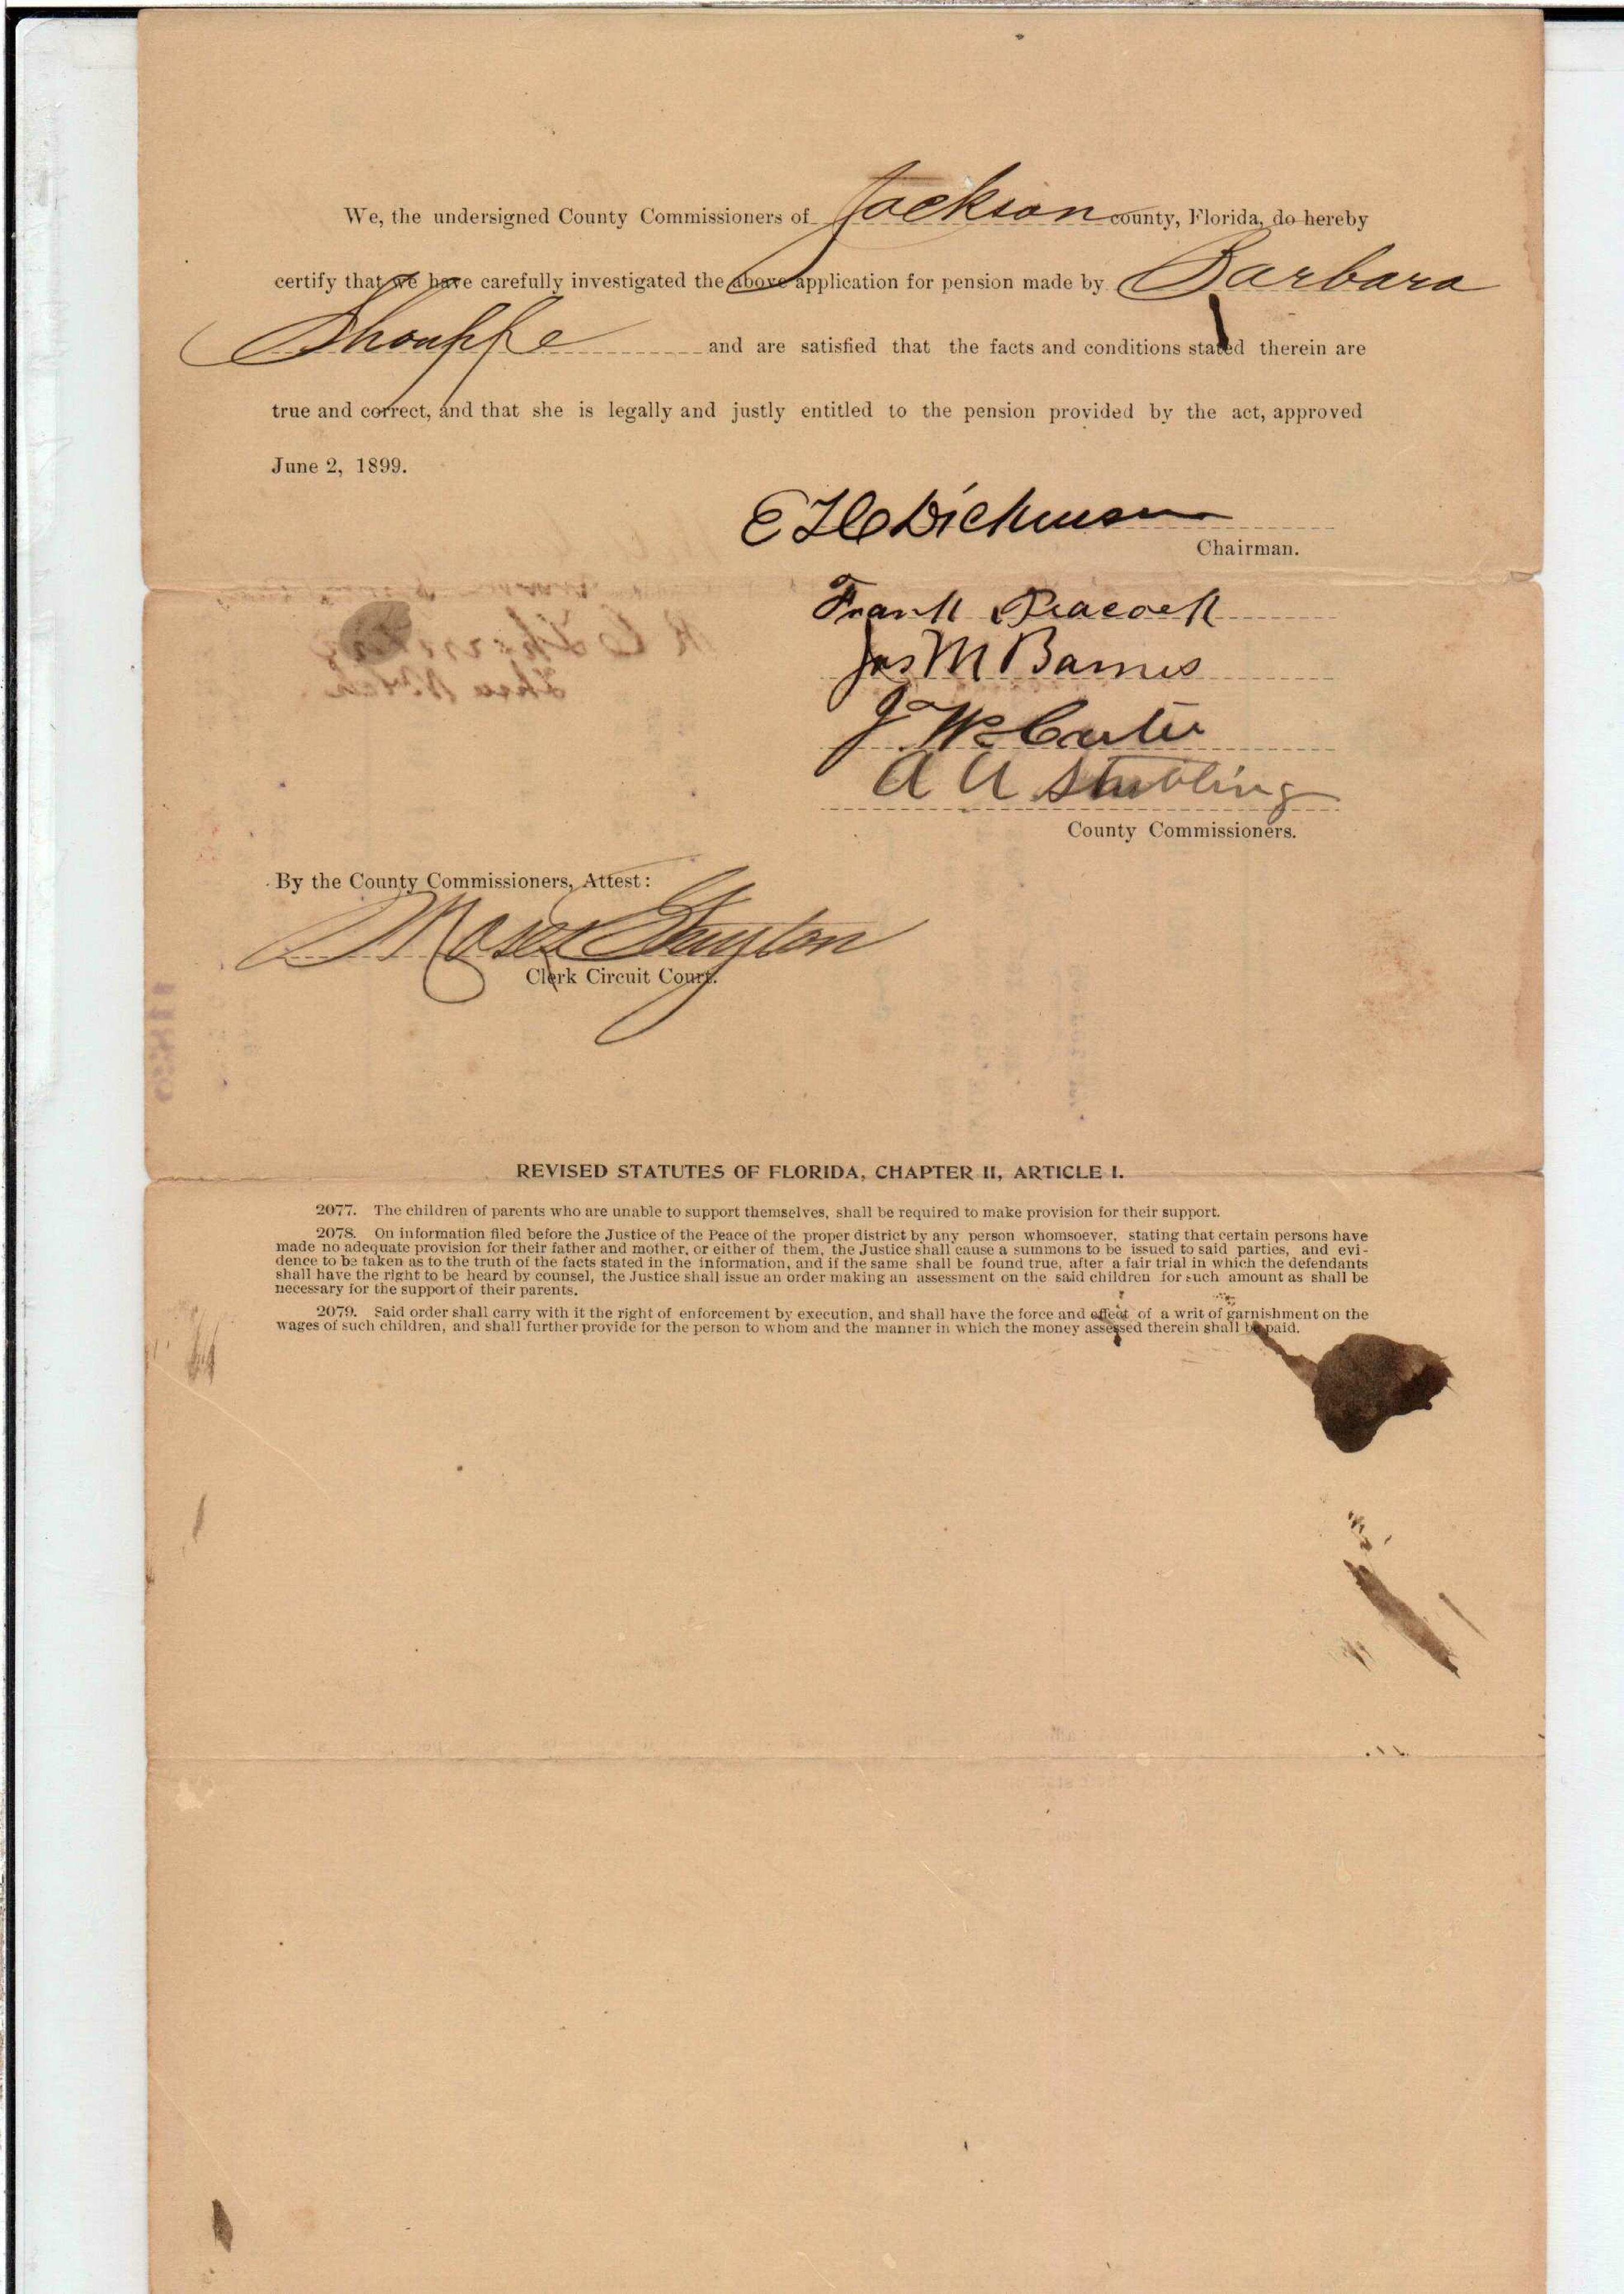 We, the undersigned County Commissioners of Jackson county, Florida, do hereby
certify that we have carefully investigated the above application for pension made by Barbara
Shouppe and are satisfied that the facts and conditions stated therein are
true and correct, and that she is legally and justly entitled to the pension provided by the act, approved
June 2, 1899.
Dickinson
Chairman.
Frank Peacock
Jas M Barnes
J W Carter
A A Stubling
County Commissioners.
By the County Commissioners, Attest:
Moses Guyton
Clerk Circuit Court.
REVISED STATUTES OF FLORIDA, CHAPTER II, ARTICLE I.
2077. The children of parents who are unable to support themselves, shall be required to make provision for their support.
2078. On information filed before the Justice of the Peace of the proper district by any person whomsoever, stating that certain persons have
made no adequate provision for their father and mother, or either of them, the Justice shall cause a summons to be issued to said parties, and evi-
dence to be taken as to the truth of the facts stated in the information, and if the same shall be found true, after a fair trial in which the defendants
shall have the right to be heard by counsel, the Justice shall issue an order making an assessment on the said children for such amount as shall be
necessary for the support of their parents.
2079. Said order shall carry with it the right of enforcement by execution, and shall have the force and effect of a writ of garnishment on the
wages of such children, and shall further provide for the person to whom and the manner in which the money assessed therein shall be paid.